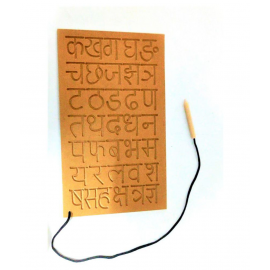 क ख ग घ ङ
च छ ज झ ञ
ट ठ ड ढ ण
त थ द ध न
प फ ब भ म
य र ल व श
ष स ह क्ष त्र ज्ञ